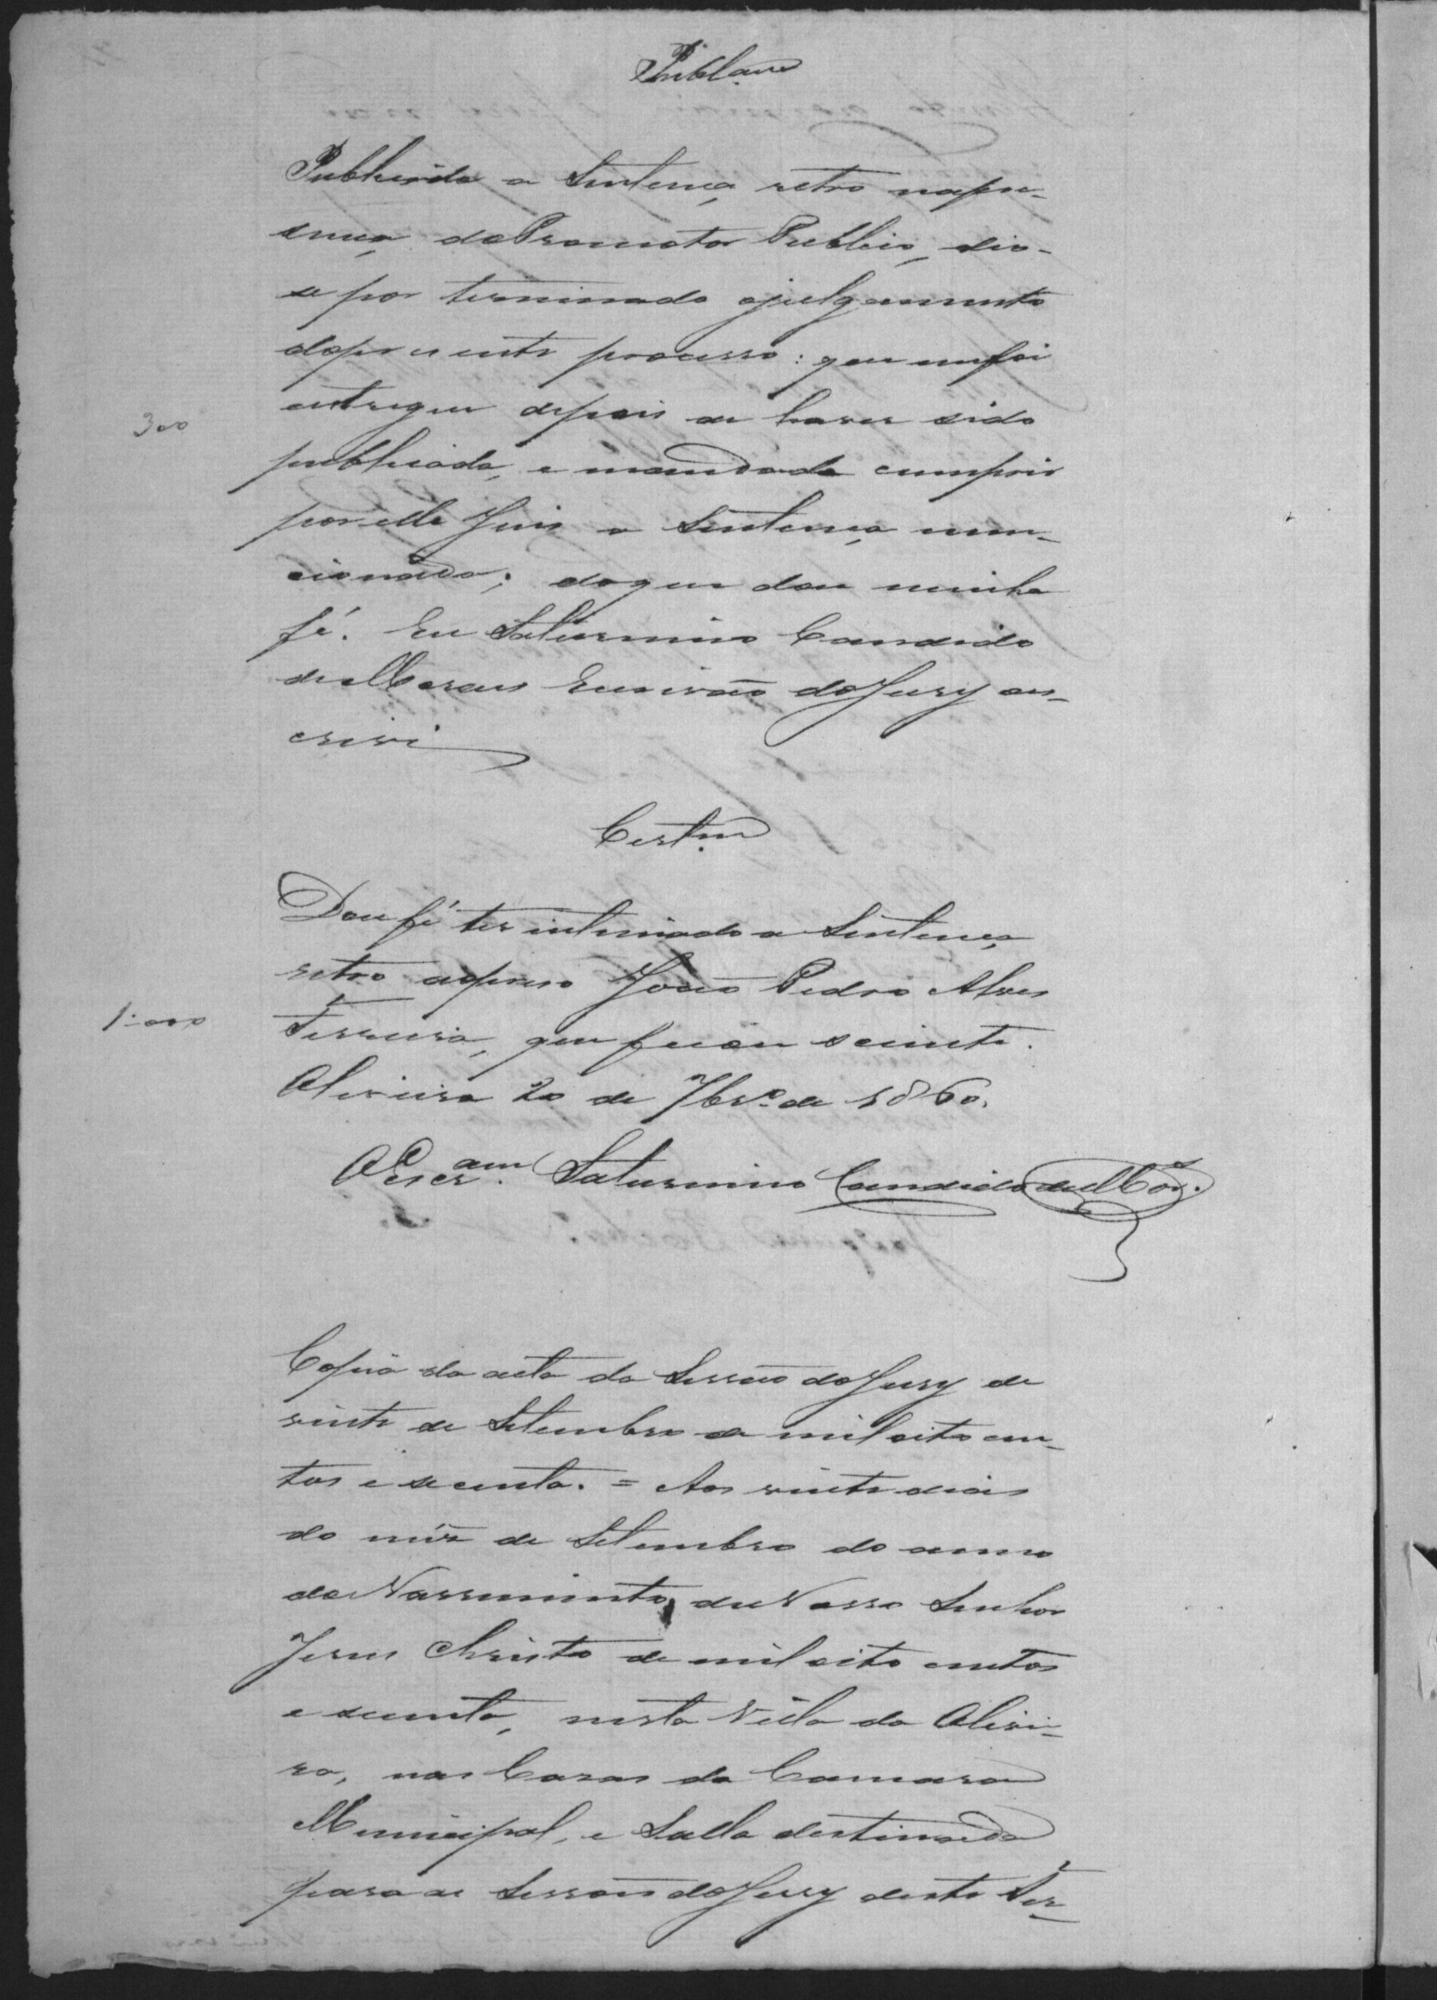 Publ.am
Publicada a Sentença retro napre-
sença doPromotor Publico, dio-
se por terminado ojulgamento
dopresente processo: que mefoi
entregue depois de haver sido
300
publicada, e mandada cumprir
por elle Juis a Sentença men-
cionada; doque dou minha
fé. Eu Saturnino Candido
deMoraes Escrivão doJury es-
crevi
Cert.am
Dou fé ter intimado a Sentença
retro aopreso João Pedro Alves
1:000
Ferreira, que ficou sciente.
Oliveira 20 de 7br.o de 1860.
O Escr.am Saturnino Candido deMor.
Copia da acta da Sessão doJury de
vinte de Setembro de mil oito cen-
tos e secenta. = Aos vinte dias
do mês de Setembro do anno
doNassimento deNosso Senhor
Jesus Christo de mil oito centos
e secenta, nesta Villa da Olivei-
ra, nas Casas da Camara
Municipal, e Salla destinada
para as Sessões doJury deste Ter-